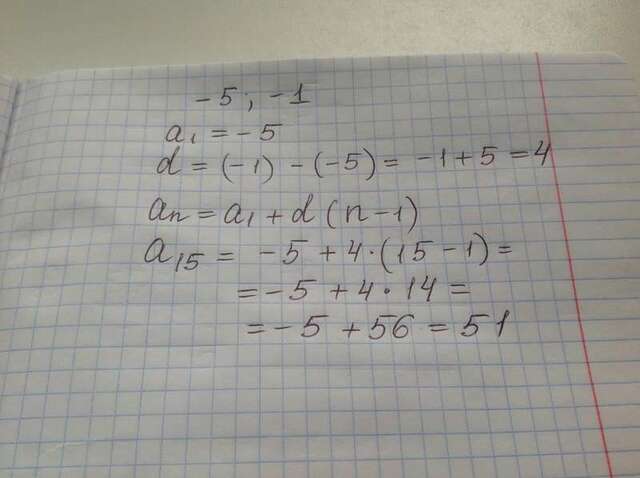 -5; -1
a₁ = -5
d = (-1) - (-5) = -1+5 = 4
aₙ = a₁ + d (n-1)
a₁₅ = -5 + 4·(15-1) =
= -5 + 4·14 =
= -5 + 56 = 51